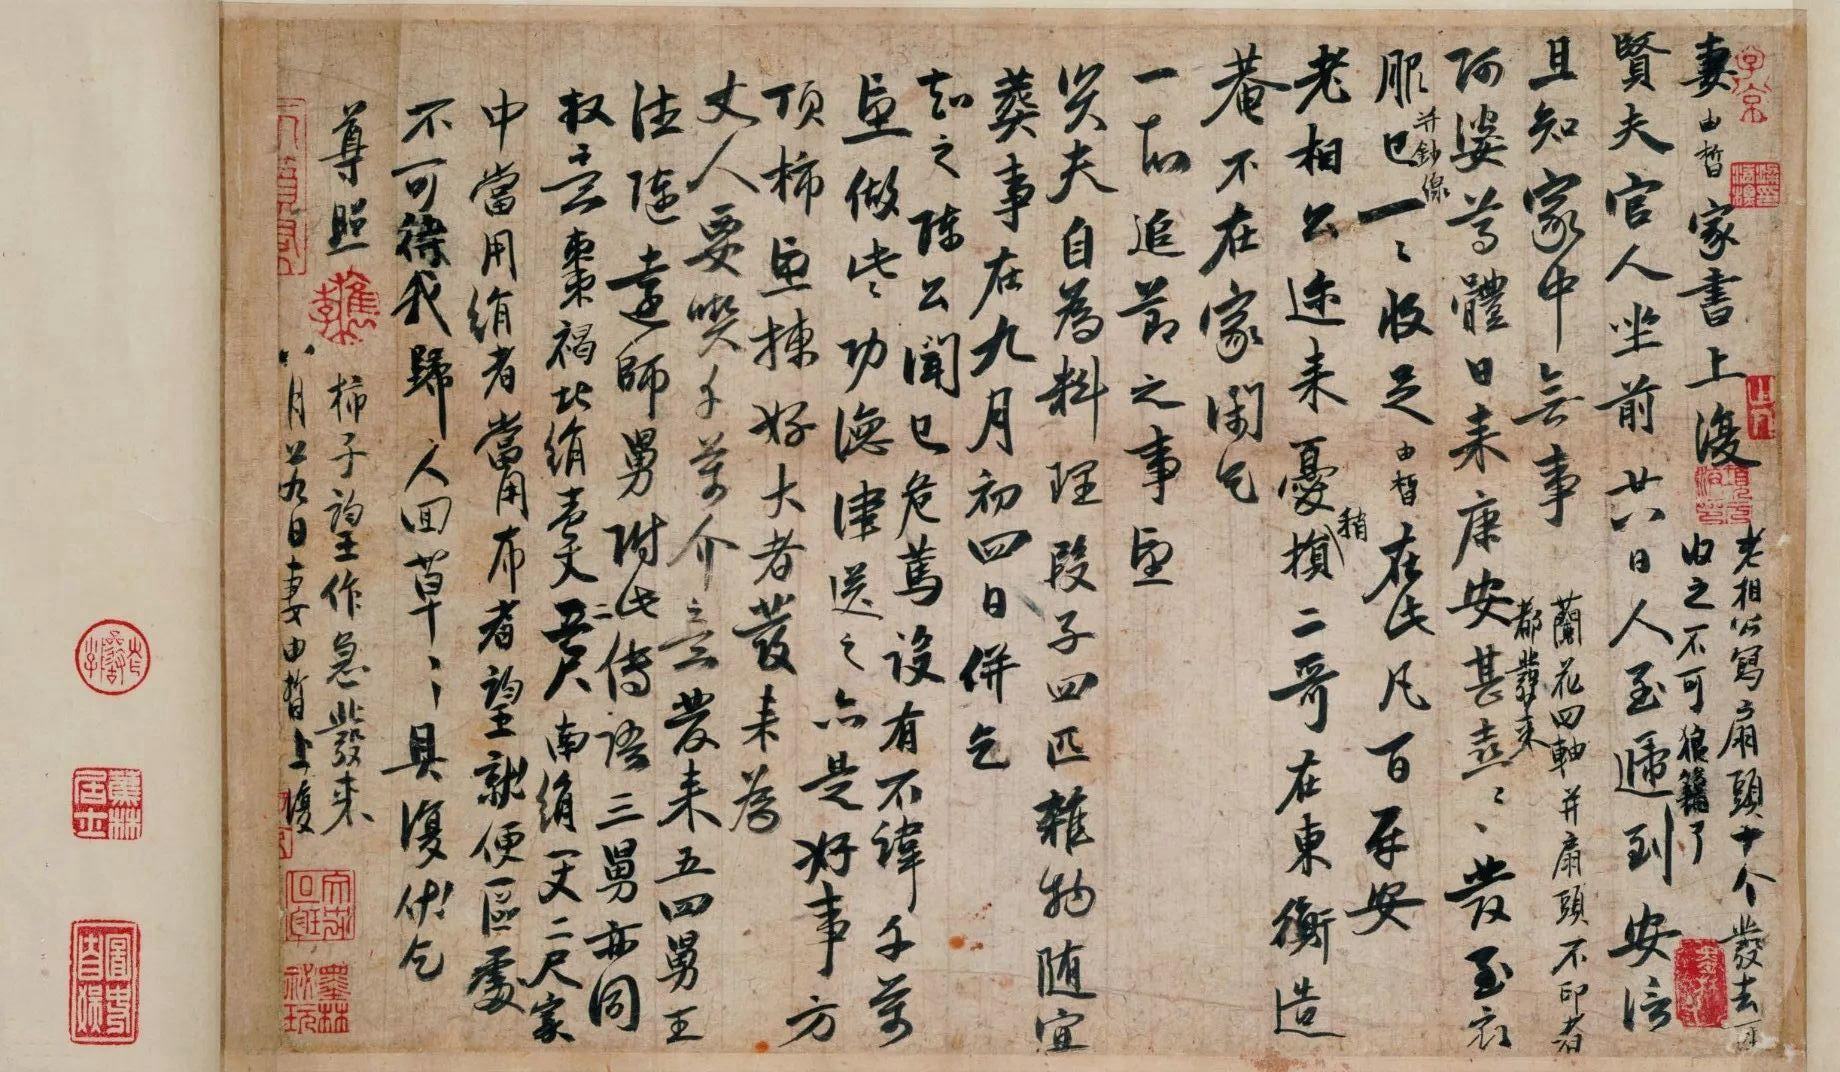 妻由晳家書上復
老相公寫扇頭十个發去可
收之不可狼籍了
賢夫官人坐前廿六日人至遞到安信
且知家中無事
蘭花四軸并扇頭不印者
都發来
阿婆尊體日来康安甚喜〻發至衣
服已一〻收足由晳在此凡百平安
并鈔線
老相公迩来憂損二哥在東衡造
稍
菴不在家閑乞
一切追薦之事望
賢夫自為料理段子四匹雜物随宜
葬事在九月初四日併乞
知之陳公聞已危篤設有不諱千萬
望做此功德津送之亦是好事方
頂柿望揀好大者發来為
丈人要喫千萬介意發来五四舅王
法随達師舅附此傳語三舅亦同
叔意棗褐北絹壹丈五尺南絹一丈二尺家
中當用絹者當用布者望就便區處
不可待我歸人回草〻具復伏乞
尊照
柿子望作急發来
八月廿九日妻由晳上復